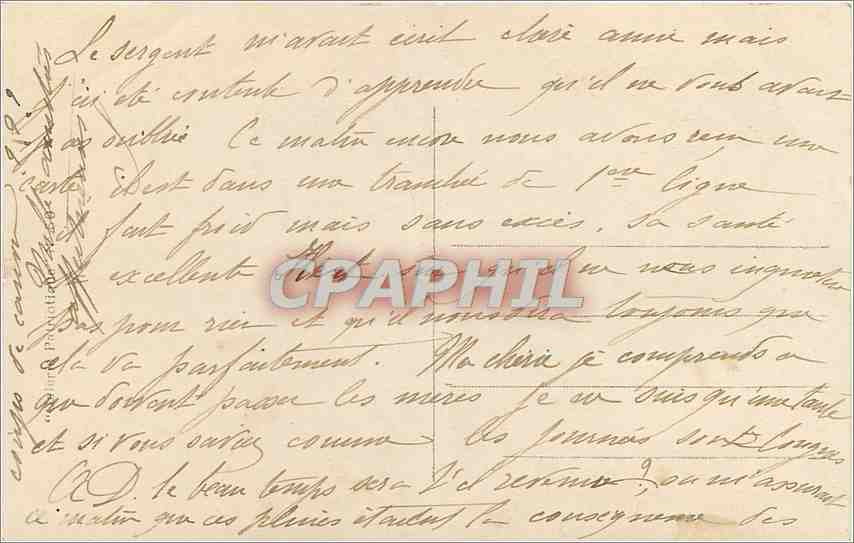 Le sergent m'avait écrit chère amie mais
j'ai été contente d'apprendre qu'il ne vous avait
pas oubliée Ce matin encore nous avons reçu une
carte il est dans une tranchée de 1ere ligne
il fait froid mais sans excès, sa santé
est excellente Il est sûr qu'il ne nous inquiétera
pas pour rien et qu'il nous dira toujours que
cela va parfaitement. Ma chérie je comprends ce
que doivent passer les mères je ne suis qu'une tante
et si vous saviez comme les journées sont longues
A D. le beau temps sera t'il revenu? on m'assurait
ce matin que ces pluies étaient la conséquence des
coups de canon
CPAPHIL